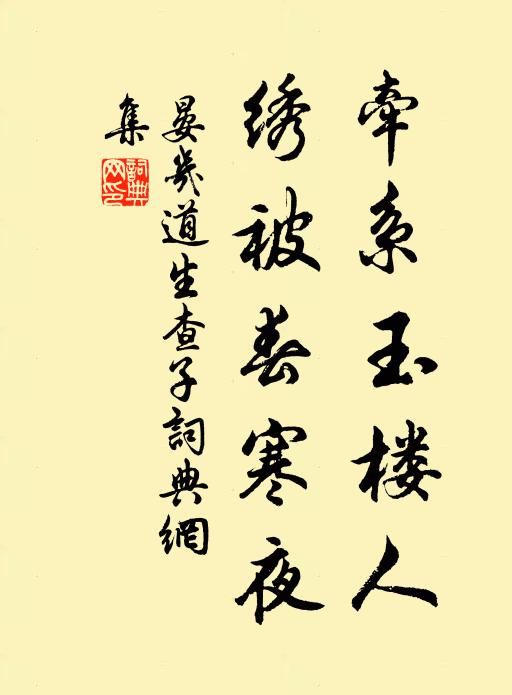 牵系玉楼人
绣被春寒夜
晏幾道生查子詞典網
集
詞典
网印